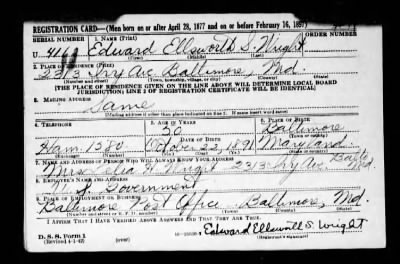 REGISTRATION CARD—(Men born on or after April 28, 1877 and on or before February 16, 1897)
SERIAL NUMBER 1. NAME (Print) ORDER NUMBER
U 4160 Edward Ellsworth S. Wright
(First) (Middle) (Last)
2. PLACE OF RESIDENCE (Print)
2313 Ivy Ave Baltimore, Md.
(Number and street) (Town, township, village, or city) (County) (State)
[THE PLACE OF RESIDENCE GIVEN ON THE LINE ABOVE WILL DETERMINE LOCAL BOARD
JURISDICTION; LINE 2 OF REGISTRATION CERTIFICATE WILL BE IDENTICAL]
3. MAILING ADDRESS
Same
[Mailing address if other than place indicated on line 2. If same insert word same]
4. TELEPHONE 5. AGE IN YEARS 6. PLACE OF BIRTH
50 Baltimore
DATE OF BIRTH (Town or county)
Ham. 1580 October 22, 1891 Maryland
(Exchange) (Number) (Mo.) (Day) (Yr.) (State or country)
7. NAME AND ADDRESS OF PERSON WHO WILL ALWAYS KNOW YOUR ADDRESS
Mrs. H. Wright 2313 Ivy Ave. Balto Md.
8. EMPLOYER'S NAME AND ADDRESS
U. S. Government
9. PLACE OF EMPLOYMENT OR BUSINESS
Baltimore Post Office Baltimore, Md.
(Number and street or R. F. D. number) (Town) (County) (State)
I AFFIRM THAT I HAVE VERIFIED ABOVE ANSWERS AND THAT THEY ARE TRUE.
D. S. S. Form 1
(Revised 4-1-42) (over) Edward Ellsworth S. Wright
(Registrant's signature)